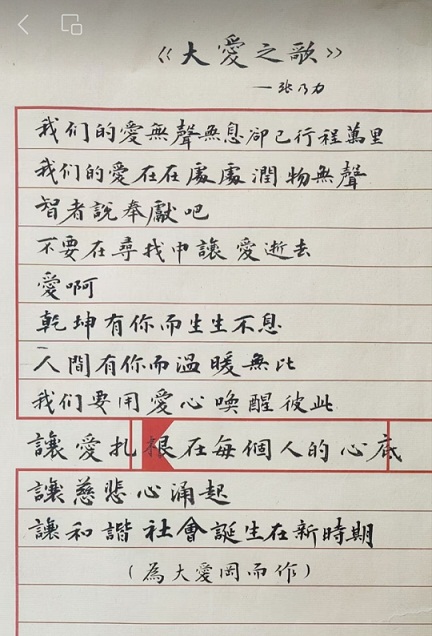 《大愛之歌》
—张乃力
我们的愛無聲無息卻已行程萬里
我们的愛在在處處潤物無聲
智者說奉獻吧
不要在尋找中讓愛逝去
愛啊
乾坤有你而生生不息
人間有你而温暖無比
我们要用愛心喚醒彼此
讓愛扎根在每個人的心底
讓慈悲心涌起
讓和諧社會誕生在新時期
(為大愛岡而作)